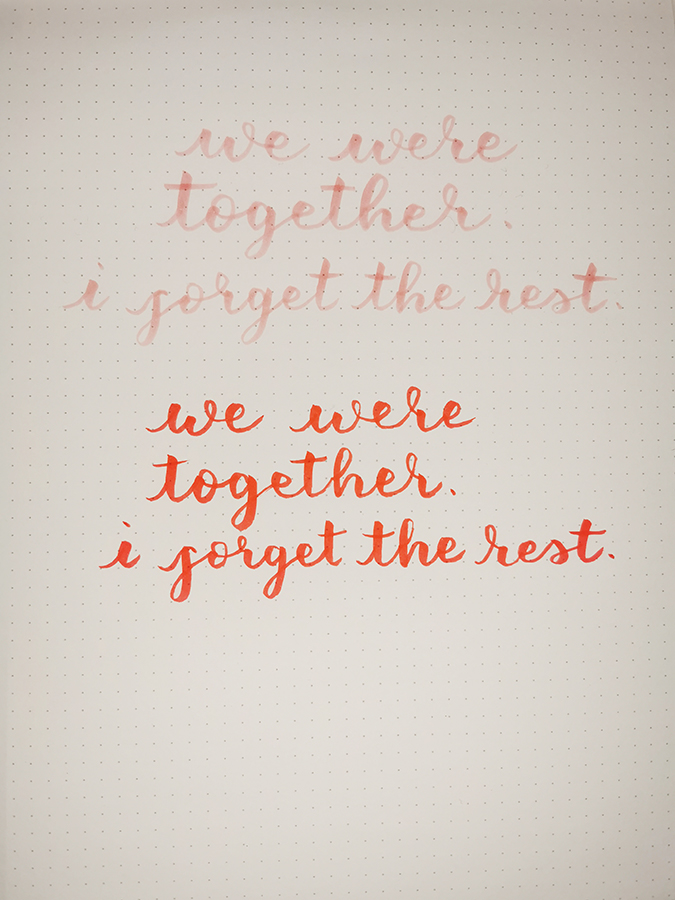 we were
together.
i forget the rest.
we were
together.
i forget the rest.